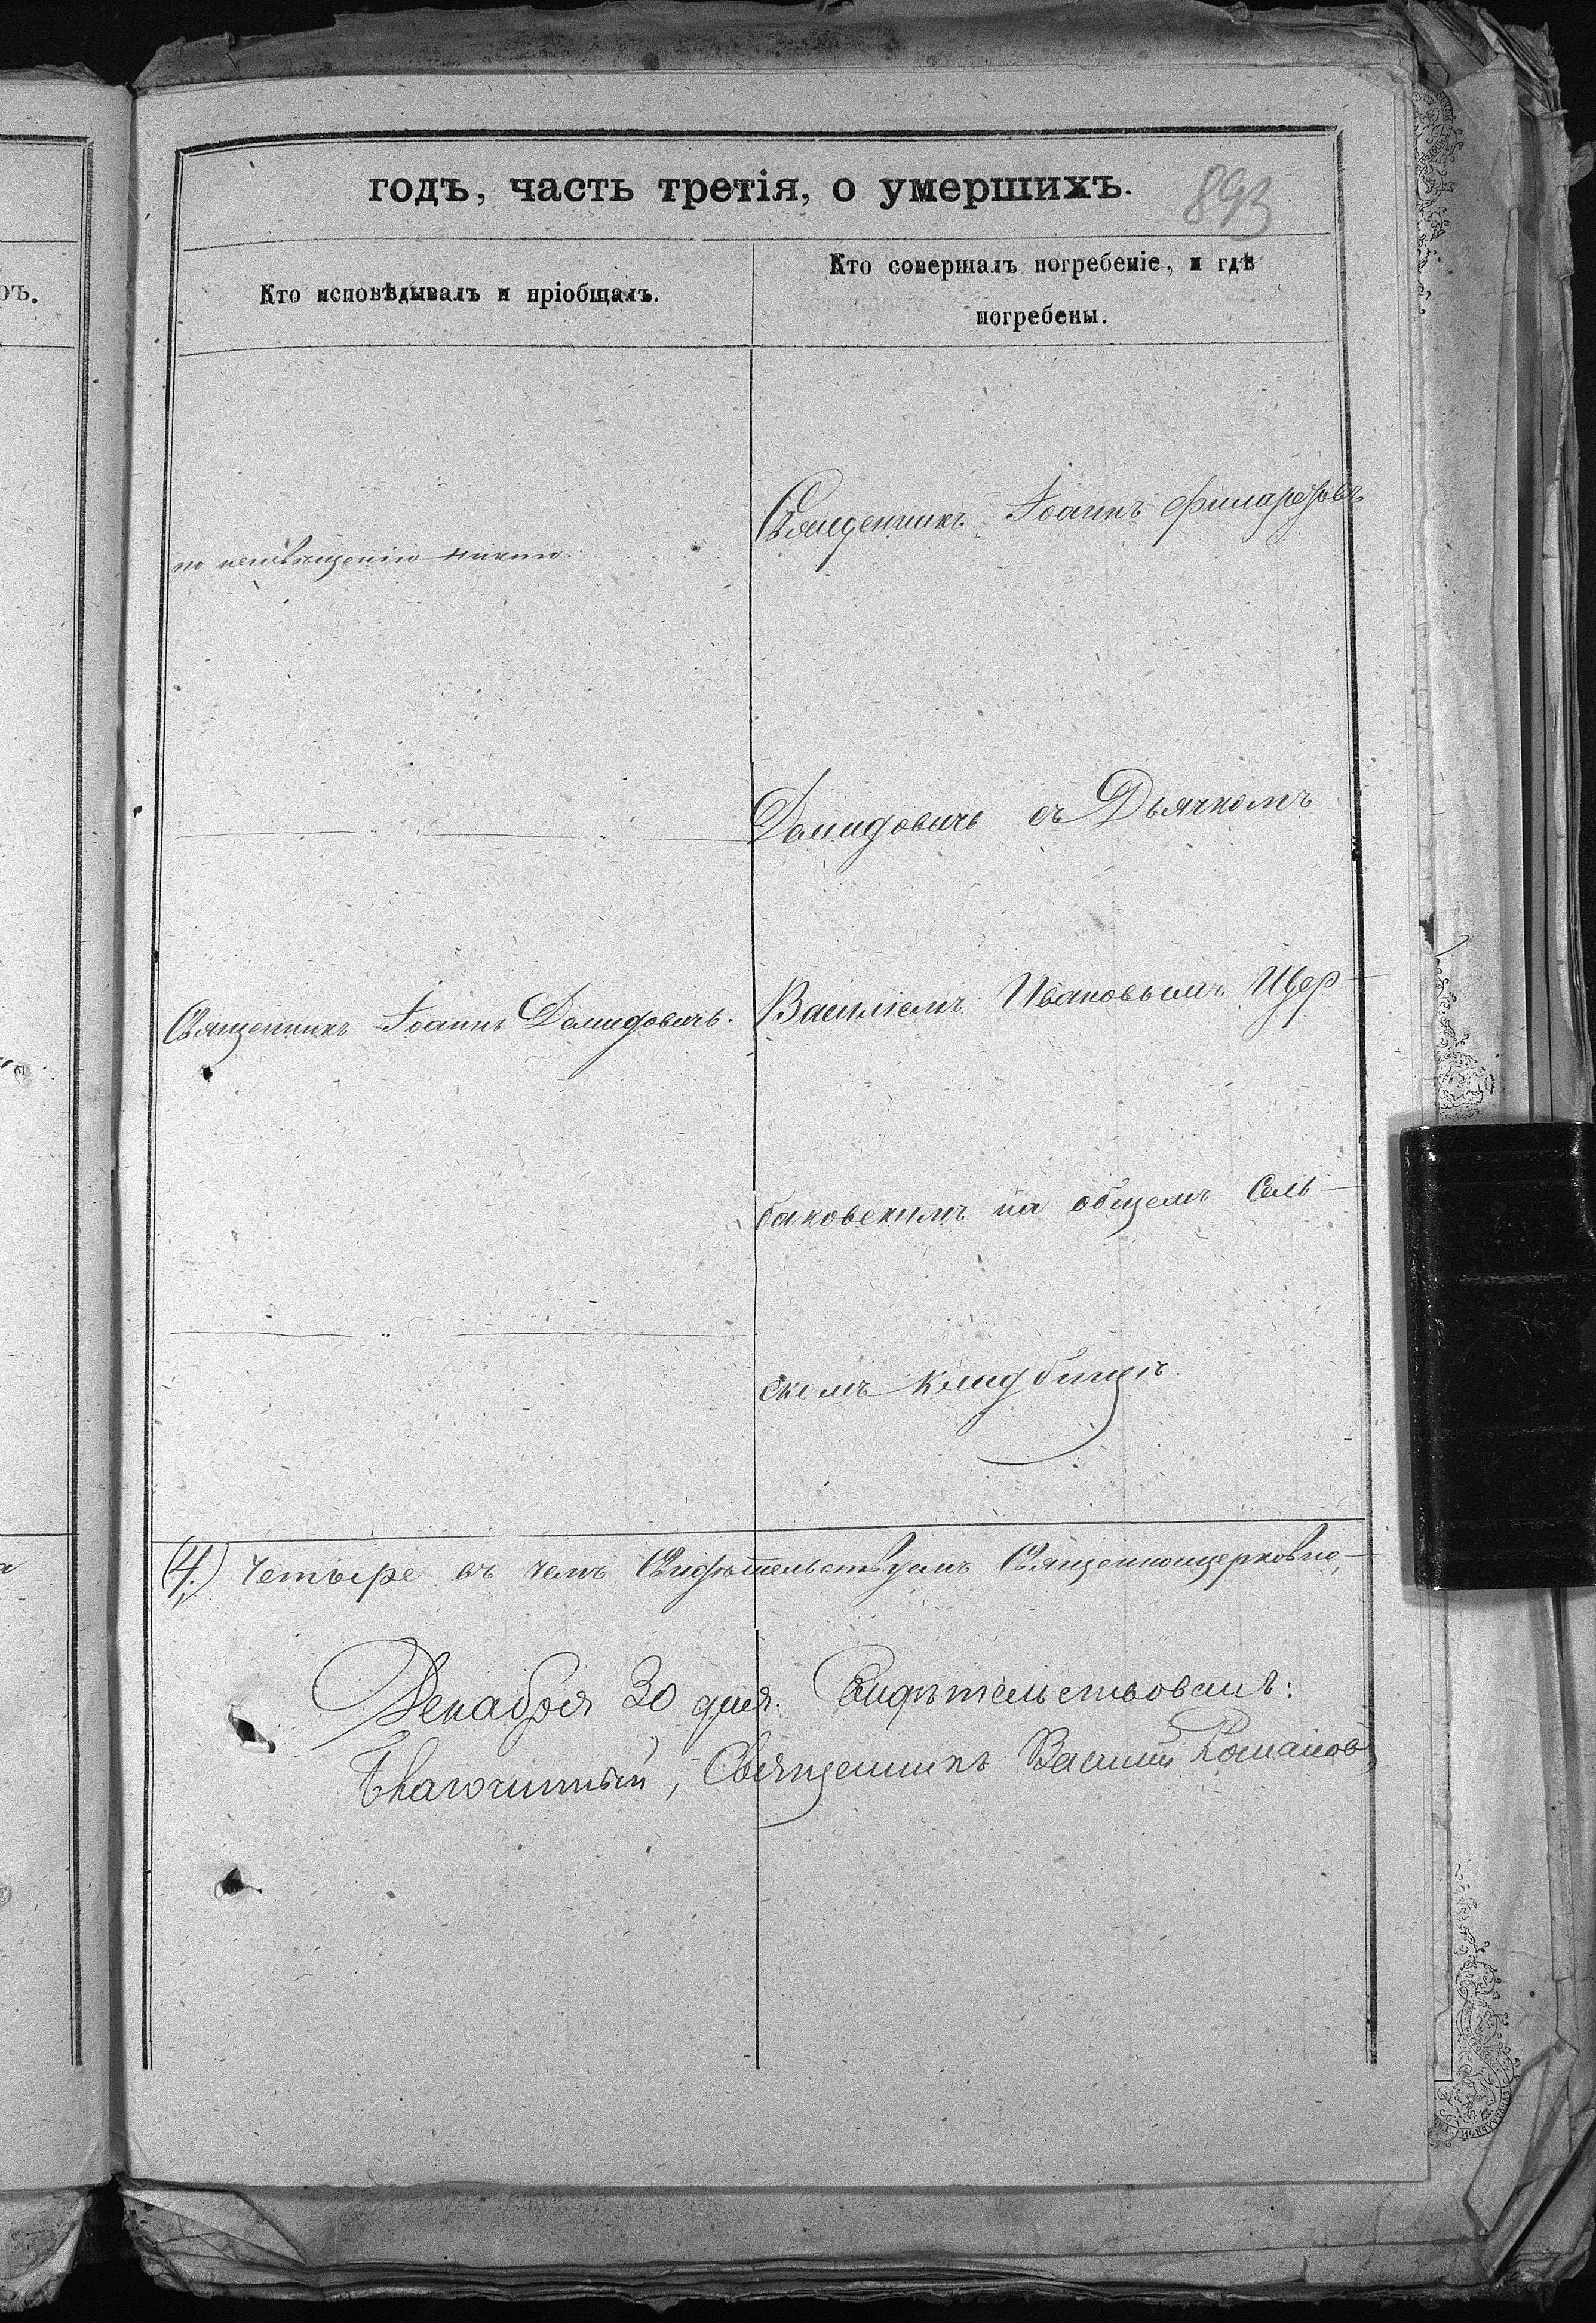 годъ, часть третія, о умершихъ.
893
Кто исповѣдывалъ и пріобщалъ.
Кто совершалъ погребеніе, и гдѣ
погребены.
Священникъ Іоаннъ Филаретовъ
по неизвѣщенію никто.
Демидовичъ съ Дьячкомъ
Священникъ Іоаннъ Демидовичъ.
Василіемъ Ивановымъ Щер-
баковскимъ на общемъ Сель-
скомъ кладбищѣ.
(4.) Четыре въ чемъ Свидѣтельствуемъ Священноцерковно-
Декабря 30 дня. Свидѣтельствовалъ:
Благочинный, Священникъ Василий Романовъ